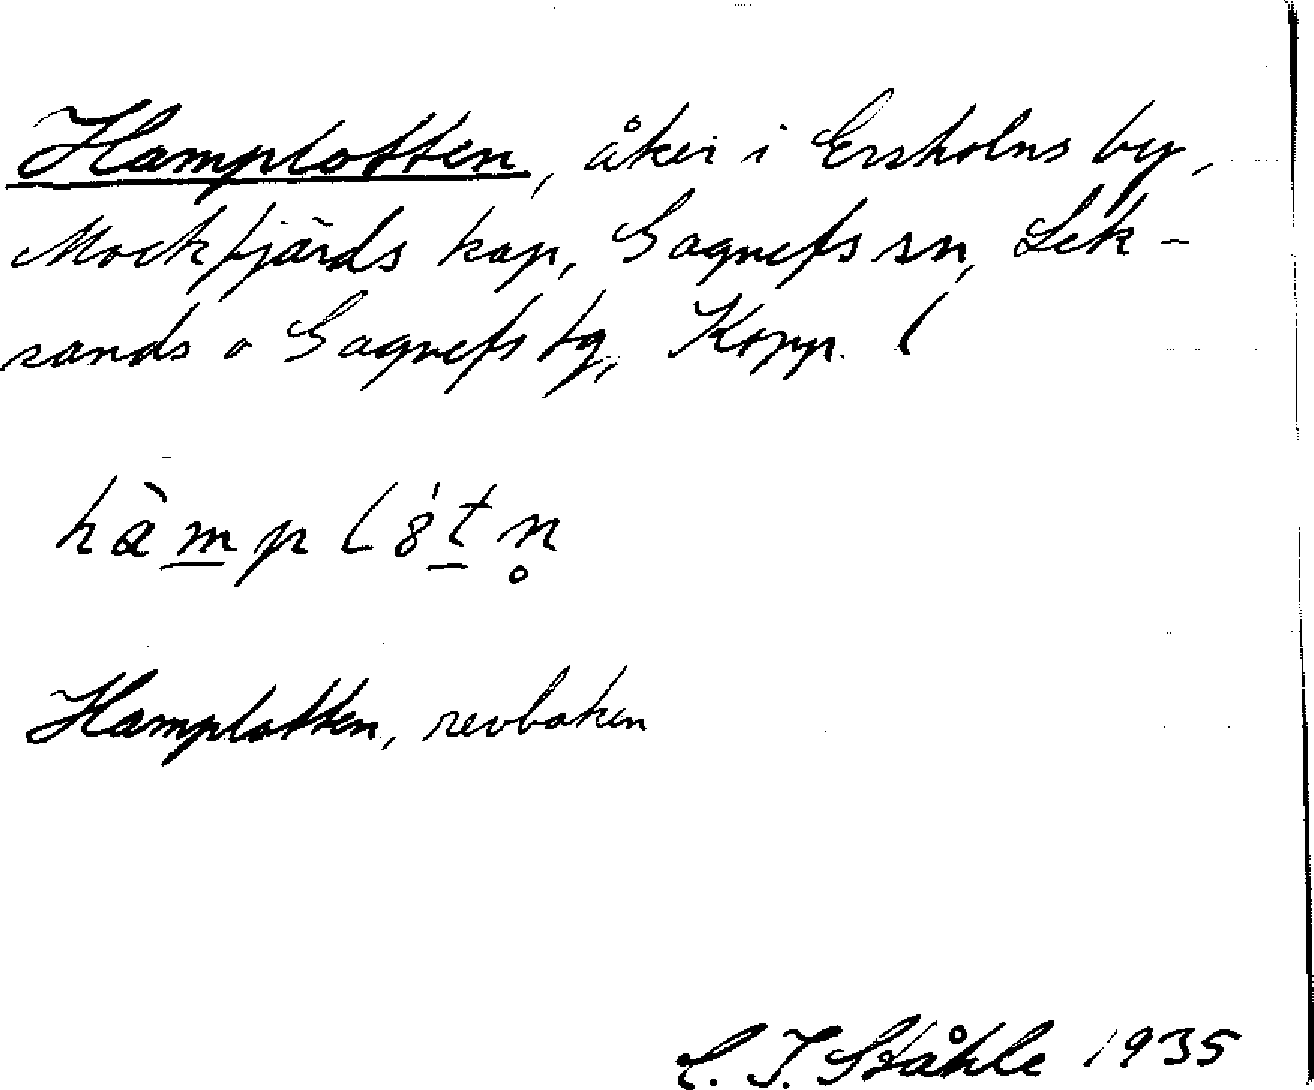 Hamplotten, åker i Ersholns by,
Mockfjärds kap, Gagnefs sn, Lek-
sands o Gagnefs tg, Kopp. l
hàmpl8́tn̥
Hamplotten, revboken
C. I. Ståhle 1935